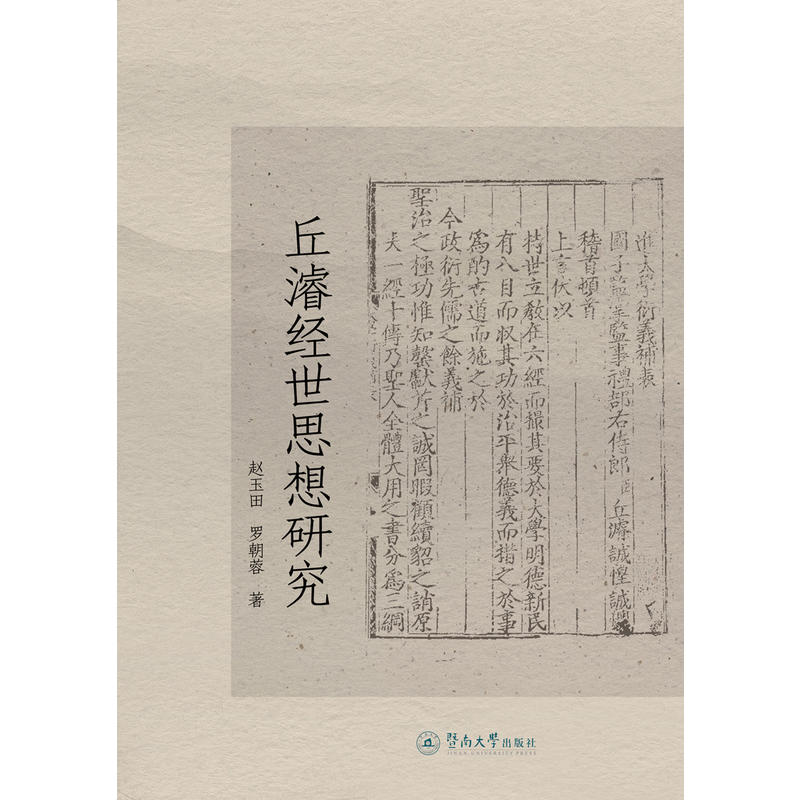 丘濬经世思想研究
赵玉田 罗朝蓉 著
進大學衍義補表
國子監掌監事禮部右侍郎臣丘濬誠惶誠懼
稽首頓首
上言伏以
持世立教在六經而撮其要於大學明德新民
有八目而收其功於治平舉德義而措之於事
爲酌古道而施之於
今政衍先儒之餘義補
聖治之極功惟知罄獻芹之誠罔暇顧續貂之誚原
夫一經十傳乃聖人全體大用之書分爲三綱
暨南大學出版社
JINAN UNIVERSITY PRESS